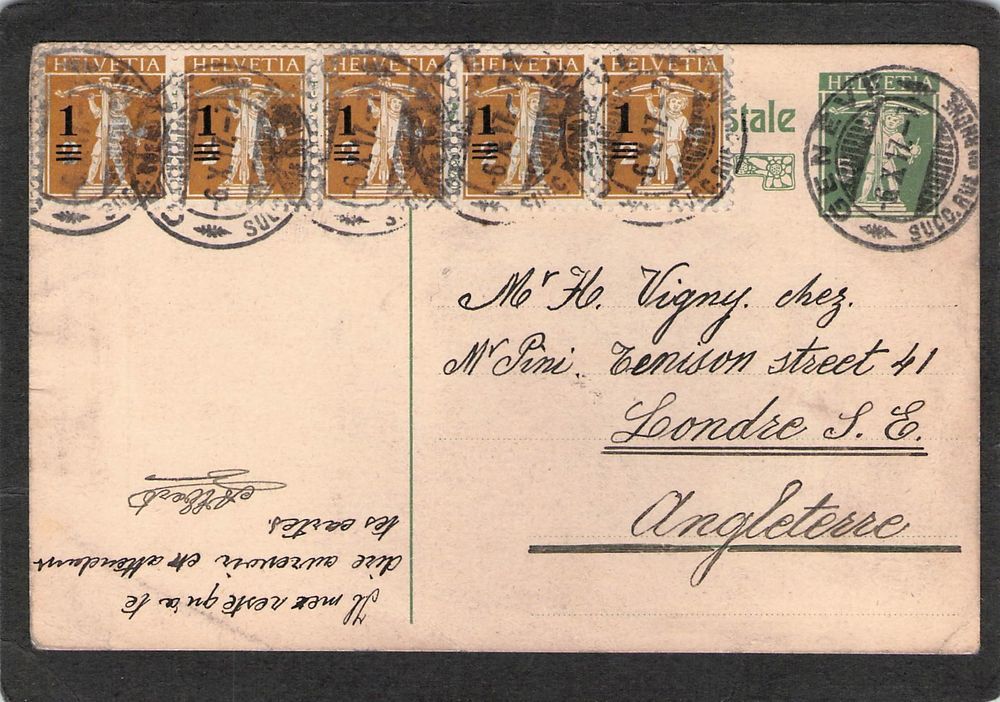 HELVETIA HELVETIA HELVETIA HELVETIA HELVETIA
1 1 1 1 1
stale
HELVETIA
GENÈVE
6.X.17.-7
SUCC. RUE DU
Mr H. Vigny. chez.
Mr Pini. Tenison street 41
Londre S. E.
Angleterre
Il me reste qu'a te
dire aurevoir en attendant
tes cartes.
Albert